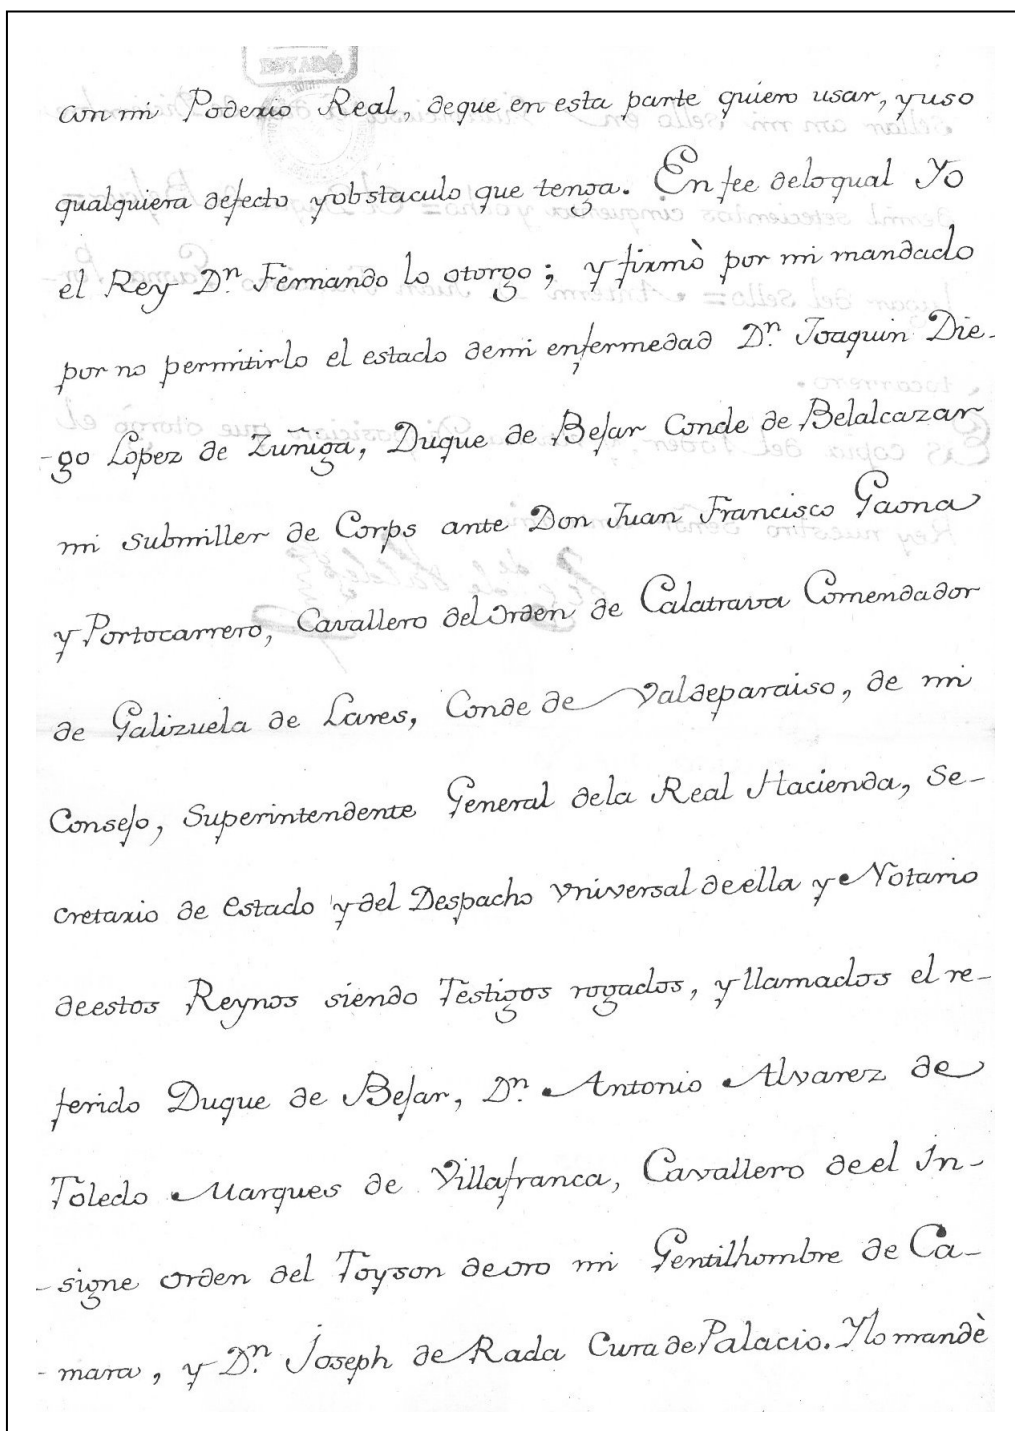 ESTADO
con mi Poderio Real, deque en esta parte quiero usar, yuso
qualquiera defecto yobstaculo que tenga. En fee deloqual Yo
el Rey Dⁿ. Fernando lo otorgo; y firmò por mi mandado
por no permitirlo el estado demi enfermedad Dⁿ. Joaquin Die-
-go Lopez de Zuñiga, Duque de Befar Conde de Belalcazar
mi Submiller de Corps ante Don Juan Francisco Gaona
y Portocarrero, Cavallero del Orden de Calatrava Comendador
de Galizuela de Lares, Conde de Valdeparaiso, de mi
Consejo, Superintendente General dela Real Hacienda, Se-
cretario de Estado y del Despacho Vniversal de ella y Notario
deestos Reynos siendo Testigos rogados, y llamados el re-
ferido Duque de Befar, Dⁿ. Antonio Alvarez de
Toledo Marques de Villafranca, Cavallero de el In-
-signe orden del Toyson deoro mi Gentilhombre de Ca-
-mara, y Dⁿ. Joseph de Rada Cura de Palacio. Ylo mandè